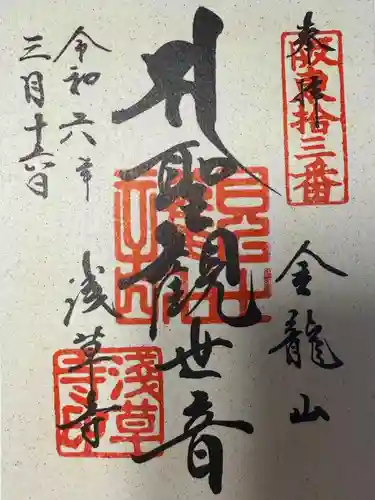 奉拝
坂東拾三番
金龍山
聖観世音
浅草寺
令和六年
三月十六日
浅草寺印